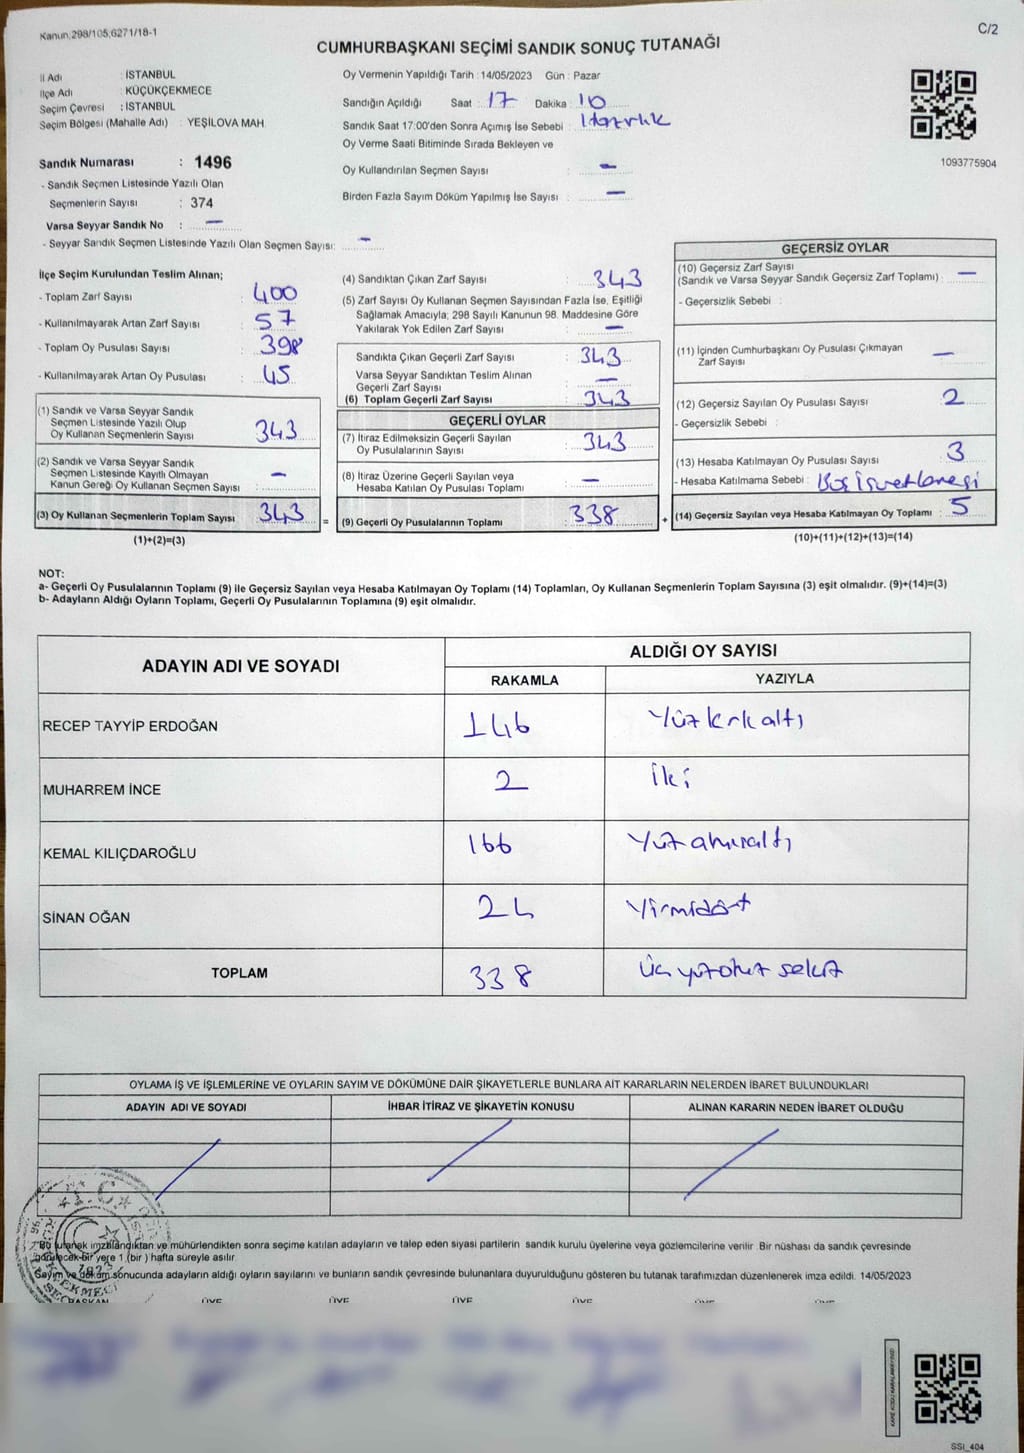 Kanun,298/105,6271/18-1
C/2
CUMHURBAŞKANI SEÇİMİ SANDIK SONUÇ TUTANAĞI
İl Adı : İSTANBUL
İlçe Adı : KÜÇÜKÇEKMECE
Seçim Çevresi : İSTANBUL
Seçim Bölgesi (Mahalle Adı) : YEŞİLOVA MAH.
Sandık Numarası : 1496
- Sandık Seçmen Listesinde Yazılı Olan
Seçmenlerin Sayısı : 374
Varsa Seyyar Sandık No : —
- Seyyar Sandık Seçmen Listesinde Yazılı Olan Seçmen Sayısı: —
Oy Vermenin Yapıldığı Tarih : 14/05/2023 Gün : Pazar
Sandığın Açıldığı Saat : 17 Dakika : 10
Sandık Saat 17:00'den Sonra Açımış İse Sebebi : Hazırlık
Oy Verme Saati Bitiminde Sırada Bekleyen ve
Oy Kullandırılan Seçmen Sayısı : —
Birden Fazla Sayım Döküm Yapılmış İse Sayısı : —
1093775904
İlçe Seçim Kurulundan Teslim Alınan;
- Toplam Zarf Sayısı : 400
- Kullanılmayarak Artan Zarf Sayısı : 57
- Toplam Oy Pusulası Sayısı : 398
- Kullanılmayarak Artan Oy Pusulası : 45
(1) Sandık ve Varsa Seyyar Sandık
Seçmen Listesinde Yazılı Olup
Oy Kullanan Seçmenlerin Sayısı : 343
(2) Sandık ve Varsa Seyyar Sandık
Seçmen Listesinde Kayıtlı Olmayan
Kanun Gereği Oy Kullanan Seçmen Sayısı : —
(3) Oy Kullanan Seçmenlerin Toplam Sayısı : 343 =
(1)+(2)=(3)
(4) Sandıktan Çıkan Zarf Sayısı : 343
(5) Zarf Sayısı Oy Kullanan Seçmen Sayısından Fazla İse, Eşitliği
Sağlamak Amacıyla; 298 Sayılı Kanunun 98. Maddesine Göre
Yakılarak Yok Edilen Zarf Sayısı : —
Sandıkta Çıkan Geçerli Zarf Sayısı : 343
Varsa Seyyar Sandıktan Teslim Alınan
Geçerli Zarf Sayısı : —
(6) Toplam Geçerli Zarf Sayısı : 343
GEÇERLİ OYLAR
(7) İtiraz Edilmeksizin Geçerli Sayılan
Oy Pusulalarının Sayısı : 343
(8) İtiraz Üzerine Geçerli Sayılan veya
Hesaba Katılan Oy Pusulası Toplamı : —
(9) Geçerli Oy Pusulalarının Toplamı : 338 +
GEÇERSİZ OYLAR
(10) Geçersiz Zarf Sayısı
(Sandık ve Varsa Seyyar Sandık Geçersiz Zarf Toplamı) : —
- Geçersizlik Sebebi :
(11) İçinden Cumhurbaşkanı Oy Pusulası Çıkmayan
Zarf Sayısı : —
(12) Geçersiz Sayılan Oy Pusulası Sayısı : 2
- Geçersizlik Sebebi :
(13) Hesaba Katılmayan Oy Pusulası Sayısı : 3
- Hesaba Katılmama Sebebi : Boş
(14) Geçersiz Sayılan veya Hesaba Katılmayan Oy Toplamı : 5
(10)+(11)+(12)+(13)=(14)
NOT:
a- Geçerli Oy Pusulalarının Toplamı (9) ile Geçersiz Sayılan veya Hesaba Katılmayan Oy Toplamı (14) Toplamları, Oy Kullanan Seçmenlerin Toplam Sayısına (3) eşit olmalıdır. (9)+(14)=(3)
b- Adayların Aldığı Oyların Toplamı, Geçerli Oy Pusulalarının Toplamına (9) eşit olmalıdır.
ADAYIN ADI VE SOYADI ALDIĞI OY SAYISI
RAKAMLA YAZIYLA
RECEP TAYYİP ERDOĞAN 146 Yüzkırkaltı
MUHARREM İNCE 2 İki
KEMAL KILIÇDAROĞLU 166 Yüzatmışaltı
SİNAN OĞAN 24 Yirmidört
TOPLAM 338 Üçyüzotuz sekiz
OYLAMA İŞ VE İŞLEMLERİNE VE OYLARIN SAYIM VE DÖKÜMÜNE DAİR ŞİKAYETLERLE BUNLARA AİT KARARLARIN NELERDEN İBARET BULUNDUKLARI
ADAYIN ADI VE SOYADI İHBAR İTİRAZ VE ŞİKAYETİN KONUSU ALINAN KARARIN NEDEN İBARET OLDUĞU
Bu tutanak imzalandıktan ve mühürlendikten sonra seçime katılan adayların ve talep eden siyasi partilerin sandık kurulu üyelerine veya gözlemcilerine verilir. Bir nüshası da sandık çevresinde
görülecek bir yere 1 (bir ) hafta süreyle asılır.
Sayım ve döküm sonucunda adayların aldığı oyların sayılarını ve bunların sandık çevresinde bulunanlara duyurulduğunu gösteren bu tutanak tarafımızdan düzenlenerek imza edildi. 14/05/2023
BAŞKAN ÜYE ÜYE ÜYE ÜYE ÜYE ÜYE
SSİ_404